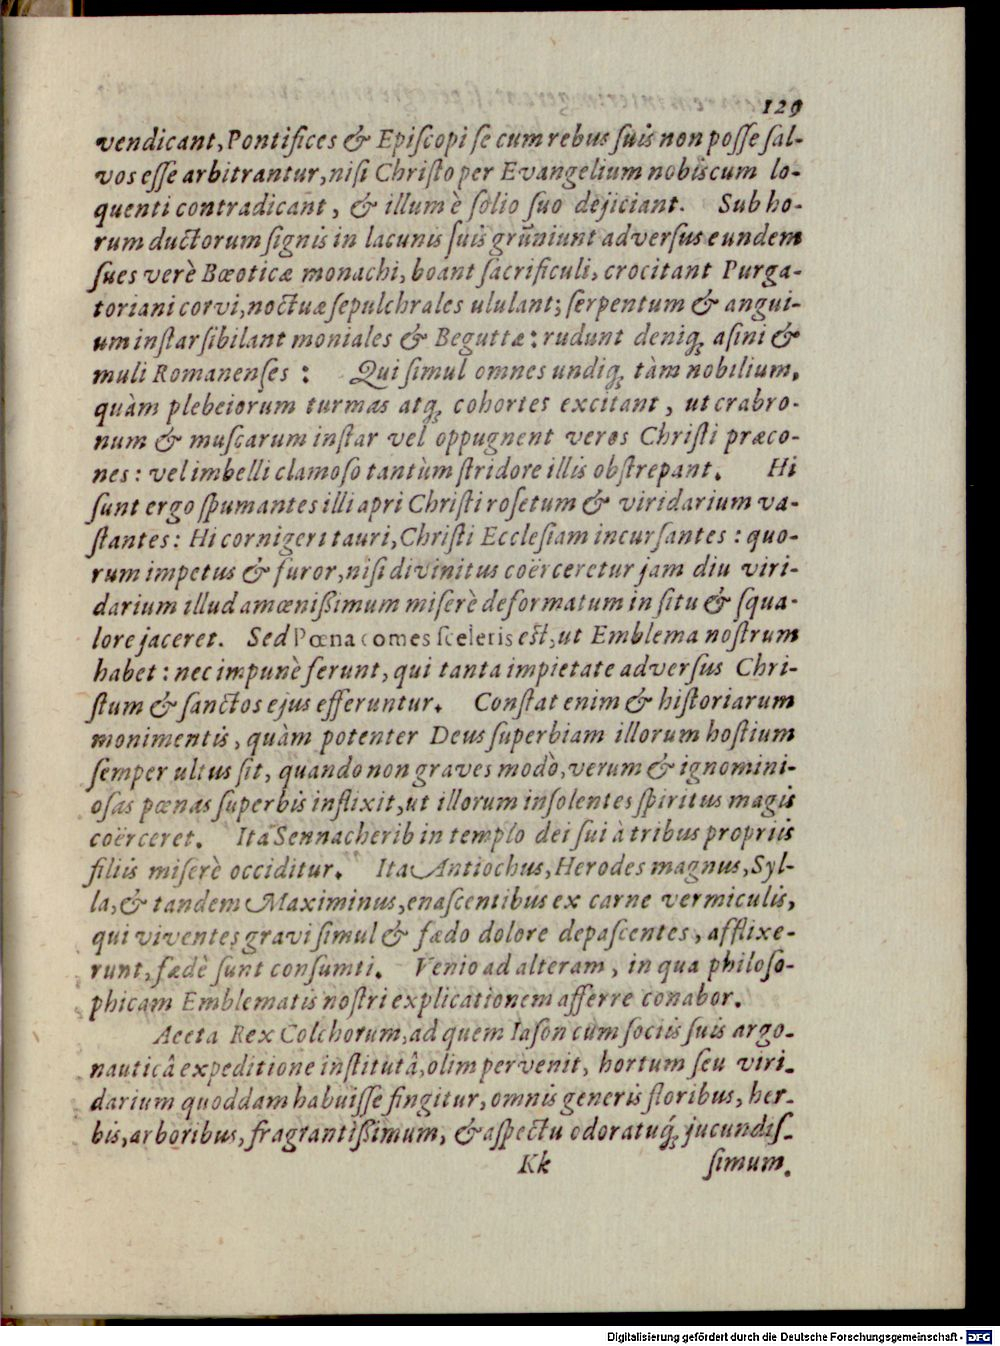 129
vendicant, Pontifices & Episcopi se cum rebus suis non posse sal-
vos esse arbitrantur, nisi Christo per Evangelium nobiscum lo-
quenti contradicant, & illum è solio suo dejiciant. Sub ho-
rum ductorum signis in lacunis suis grūniunt adversus eundem
sues verè Bœoticæ monachi, boant sacrificuli, crocitant Purga-
toriani corvi, noctuæ sepulchrales ululant; serpentum & angui-
um instar sibilant moniales & Beguttæ: rudunt deniq; asini &
muli Romanenses: Qui simul omnes undiq; tàm nobilium,
quàm plebeiorum turmas atq; cohortes excitant, ut crabro-
num & muscarum instar vel oppugnent veros Christi præco-
nes: vel imbelli clamoso tantùm stridore illis obstrepant. Hi
sunt ergo spumantes illi apri Christi rosetum & viridarium va-
stantes: Hi cornigeri tauri, Christi Ecclesiam incursantes: quo-
rum impetus & furor, nisi divinitus coërceretur jam diu viri-
darium illud amœnißimum miserè deformatum in situ & squa-
lore jaceret. Sed Pœna comes sceleris est, ut Emblema nostrum
habet: nec impunè ferunt, qui tanta impietate adversus Chri-
stum & sanctos ejus efferuntur. Constat enim & historiarum
monimentis, quàm potenter Deus superbiam illorum hostium
semper ultus sit, quando non graves modò, verum & ignomini-
osas pœnas superbis inflixit, ut illorum insolentes spiritus magis
coërceret. Ita Sennacherib in templo dei sui à tribus propriis
filiis miserè occiditur. Ita Antiochus, Herodes magnus, Syl-
la, & tandem Maximinus, enascentibus ex carne vermiculis,
qui viventes gravi simul & fædo dolore depascentes, afflixe-
runt, fædè sunt consumti. Venio ad alteram, in qua philoso-
phicam Emblematis nostri explicationem afferre conabor.
Aeeta Rex Colchorum, ad quem Iason cum sociis suis argo-
nauticâ expeditione institutâ, olim pervenit, hortum seu viri-
darium quoddam habuisse fingitur, omnis generis floribus, her-
bis, arboribus, fragrantißimum, & aspectu odoratuq́; jucundis-
Kk simum.
Digitalisierung gefördert durch die Deutsche Forschungsgemeinschaft - DFG